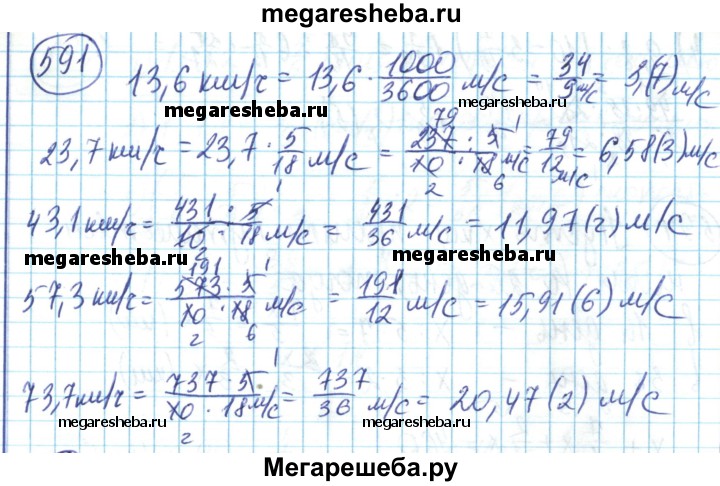 megaresheba.ru
591
13,6 км/ч = 13,6 · 1000/3600 м/с = 34/9 м/с = 3,(7) м/с
megaresheba.ru megaresheba.ru
23,7 км/ч = 23,7 · 5/18 м/с = 237 · 5/10 · 18 м/с = 79/12 м/с = 6,58(3) м/с
79 1
2 6
43,1 км/ч = 431 · 5/10 · 18 м/с = 431/36 м/с = 11,97(2) м/с
1
2
megaresheba.ru megaresheba.ru
57,3 км/ч = 573 · 5/10 · 18 м/с = 191/12 м/с = 15,91(6) м/с
191 1
2 6
73,7 км/ч = 737 · 5/10 · 18 м/с = 737/36 м/с = 20,47(2) м/с
1
2
megaresheba.ru megaresheba.ru
Мегарешеба.ру